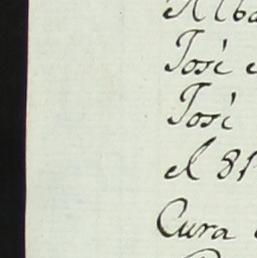 Alba
José
José
el 81
Cura